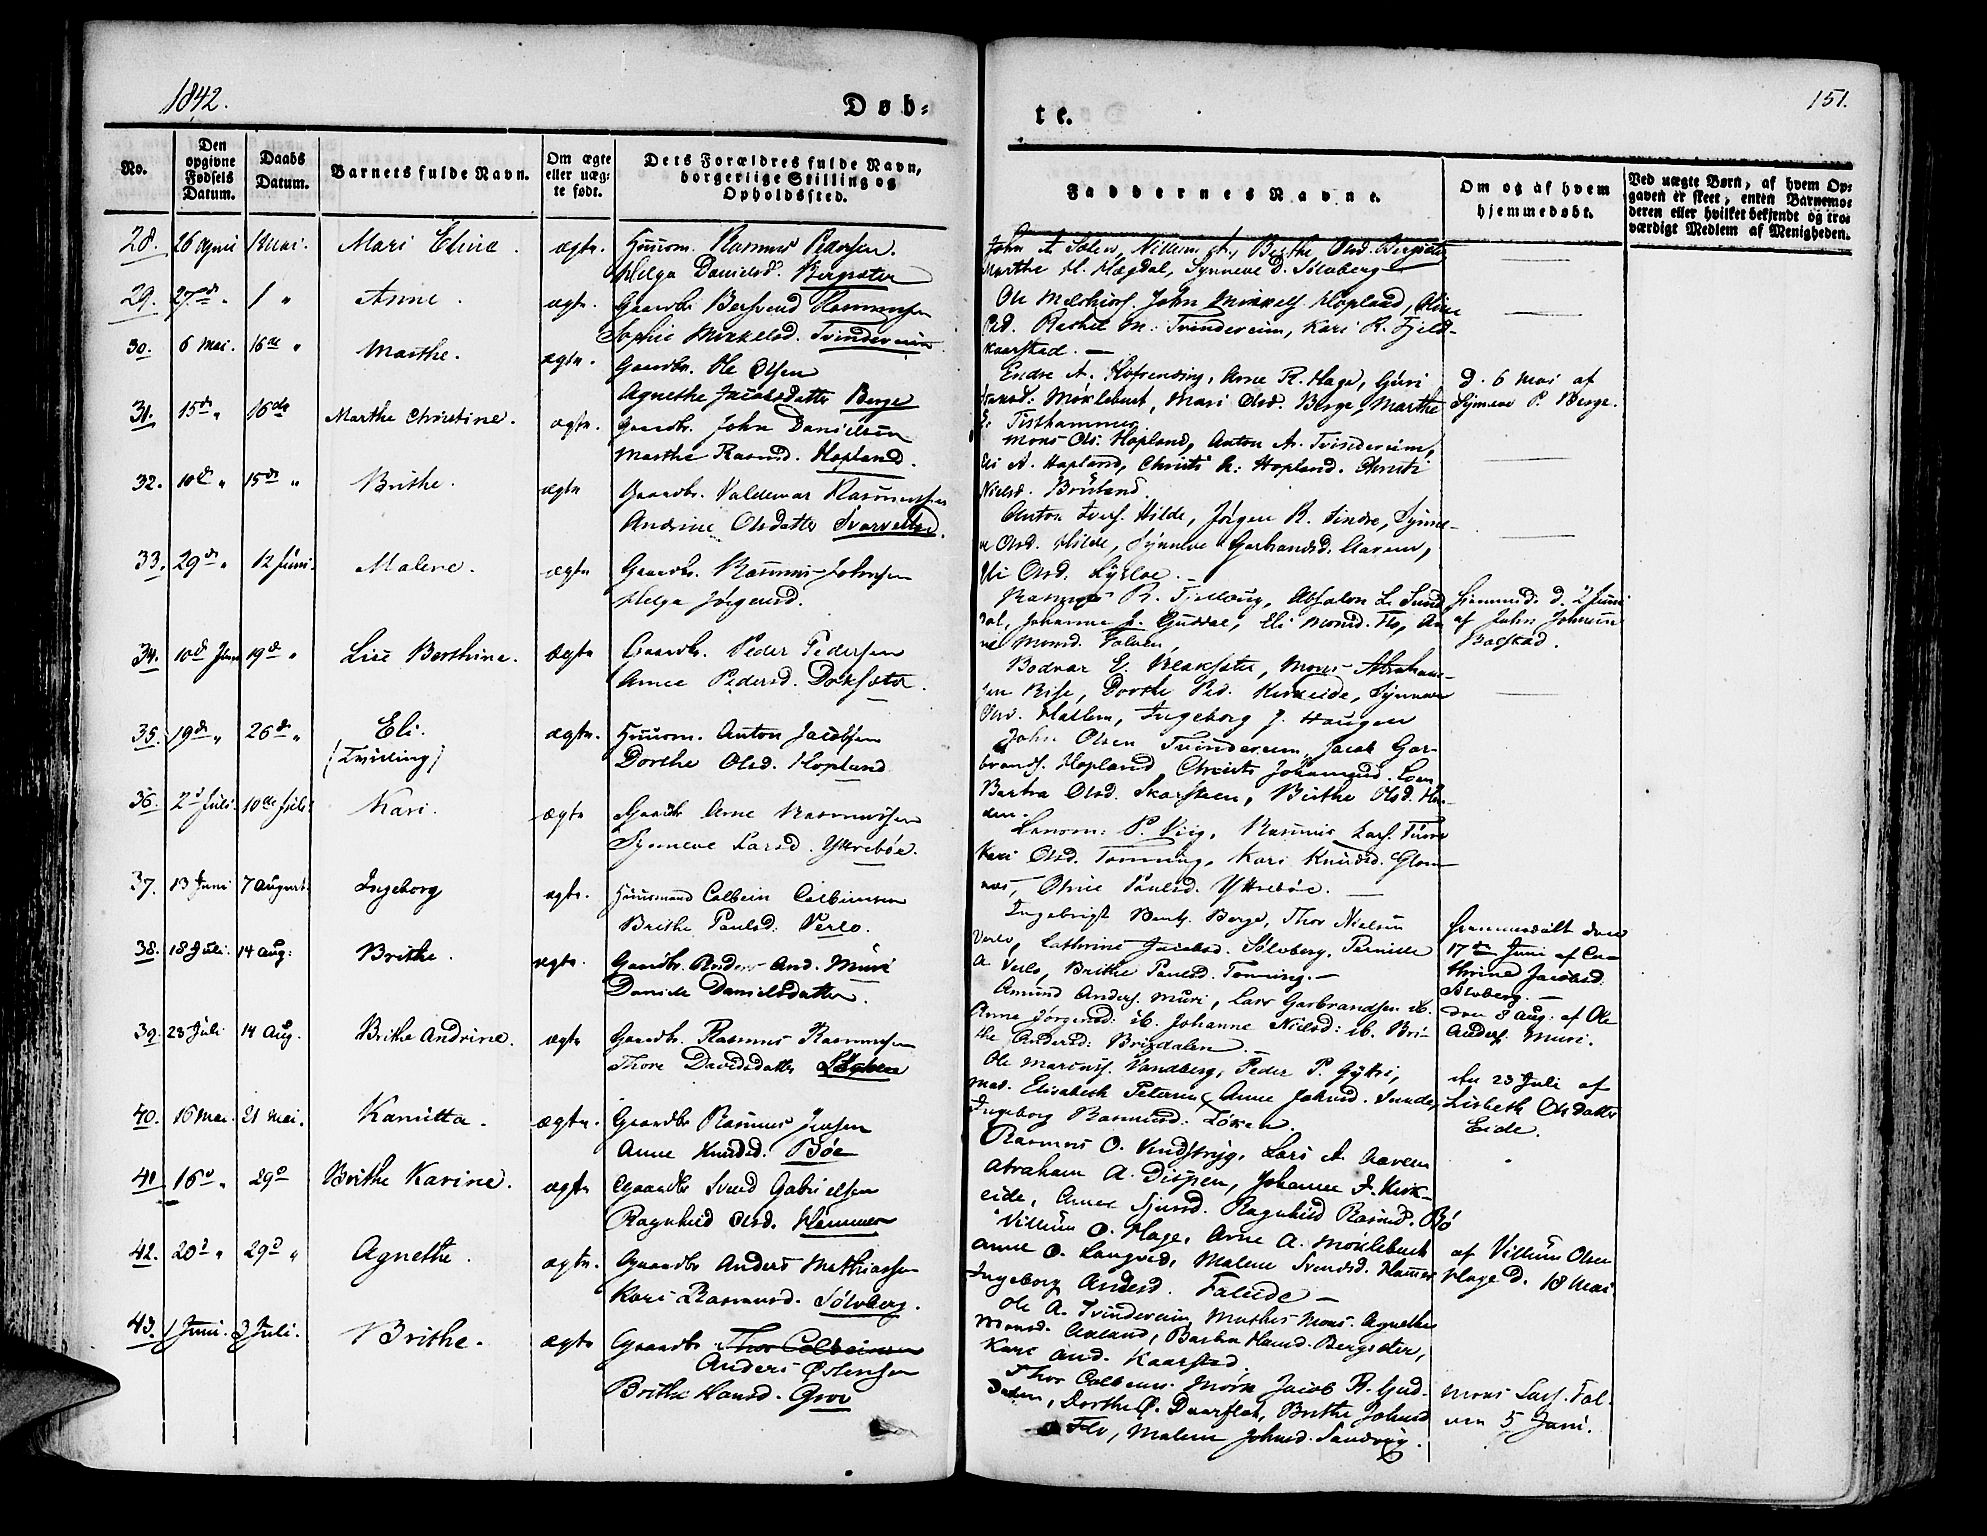 1842.
Døb-
te.
151.
No.
Den opgivne Fødsels Datum.
Daabs Datum.
Barnets fulde Navn.
Om ægte eller uæg- te født.
Dets Forældres fulde Navn, borgerlige Stilling og Opholdssted.
Faddernes Navne.
Om og af hvem hjemmedøbt.
Ved uægte Børn, af hvem Op- gaven er skeet, enten Barnemo- deren eller hvilket bekjendt og tro- værdigt Medlem af Menigheden.
28. 26 April 1 Mai. Mari Eline. ægte. Huusm. Rasmus Pedersen.
Helga Danielsd. Bergsæter
John A. Solem, Villum A., Brithe Olsd. Bergsæter
Marthe H. Hægdal, Synneve D. Sølvberg
29. 27de " 1 " Anne. ægte. Gaardbr. Bersvend Rasmussen
Sophie Mikkelsd. Tvindereim
Ole Melchiors. John Mikkels. Hopland, Oline
Ped. Rachel M: Tvindereim, Kari R. Fjeld-
kaarstad.
30. 6 Mai. 16de " Marthe. ægte. Gaardbr. Ole Olsen
Agnethe Jacobsdatter Berge
Endre A. Kofrending, Arne R. Hage, Guri
Hansd: Møklebust, Mari Olsd. Berge, Marthe
E. Tisthammer
D. 6 Mai af
Synneve P. Berge.
31. 15de " 16de Marthe Christine. ægte. Gaardbr. John Danielsen
Marthe Rasmd. Hopland.
Mons Ols. Hopland, Anton A. Tvindereim,
Eli A. Hopland, Christi R: Hopland. Christi
Nielsd. Brüland
32. 10de " 15de " Brithe. ægte Gaardbr. Valdemar Rasmussen
Andrine Olsdatter Svarvestad.
Anton Ivers. Hilde, Jørgen R. Sindre, Synne-
ve Olsd. Hilde, Synneve Garbrandsd. Aavem,
Eli Olsd. Lysloe.
33. 29de " 12 Juni. Malene. ægte Gaardbr. Rasmus Johnsen
Helga Jørgensd.
Rasmus R. , Absalon L. Sund
dal, Johanne J. Guddal, Eli Monsd. Flo, An
ne Monsd. Folven
Hjemmed. d. 2 Juni
af John Johnsen
Bolstad.
34. 10de Juni 19de " Lise Berthine. ægte Gaardbr. Peder Pedersen
Anne Pedersd. Doksæter.
Bodvar E. , Mons Abraham-
sen Rise, Dorthe Ped. Kirkeide, Synneve
Olsd. Hallem, Ingeborg J. Haugen
35. 19de " 26de " Eli. ægte. Huusm. Anton Jacobsen
(Tvilling) Dorthe Olsd. Hopland
John Olsen Tvindereim, Jacob Gar-
brands. Hopland, Christi Johannesd. Loen
Barbra Olsd. Skarsteen, Brithe Olsd. Hau-
den.
36. 2d Juli 10de Juli Kari. ægte Gaardbr Arne Rasmussen
Synneve Larsd. Yttrebøe.
Lensm: P. Viig, Rasmus Lars. Tuva
Kari Olsd. Tonning, Kari Knudsd. Glom-
næs, Oline Paulsd. Yttrebøe.
37. 13 Juni 7 August Ingeborg ægte. Huusmand Colbein Colbeinsen
Brithe Paulsd. Verlo.
Ingebrigt Bent. Berge, Thor Nielsen
Verlo, Cathrine Jacobsd. Sølvberg, Pernille
A. Verlo, Brithe Paulsd. Tonning.
hjemmedøbt den
17de Juni af Ca-
thrine Jacobsd.
Sølvberg.
38. 18 Juli. 14 Aug: Brithe. ægte. Gaardbr. Anders And. Muri
Daniele Danielsdatter.
Amund Anders. Muri, Lars Garbrandsen ib.
Anne Jørgensd: ib. Johanne Nielsd: ib. Bri-
the Andersd: Brigdalen
den 8 Aug. af Ole
Anders. Muri.
39. 23 Juli 14 Aug. Brithe Andrine. ægte Gaardbr. Rasmus Rasmussen
Thore Davidsdatter
Ole Marcuss. Vandberg, Peder P. Gytri,
Mad. Elisabeth Petersen, Anne Johnsd. Sunde,
Ingeborg Rasmusd. Løken.
den 23 Juli af
Lisbeth Olsdatter
Eide.
40. 16 Mai. 21 Mai. Kamitta. ægte. Gaardbr Rasmus Jensen
Anne Knudsd. Bøe
Rasmus O. Vindstryg, Lars A. Aavem
Abraham A. Dispen, Johanne J. Kirk-
eide, Anne Sjursd. Ragnhild Rasmd. Bø
41. 16d " 29d Brithe Karine. ægte Gaardbr Svend Gabrielsen
Ragnhild Olsd. Hammer
Villum O. Hage, Arne A. Møklebust
Anne O. Langved, Malene Svendsd. Hammer
Ingeborg Andersd. Faleide
af Villum Olsen
Hage D. 18 Mai
42. 20d " 29d " Agnethe. ægte. Gaardbr Anders Mathiassen
Kari Rasmusd. Sølvberg.
Ole A. Tvindereim, Mathis Mons. Agnethe
Monsd. Aaland, Barbra Hansd. Bergsæter,
Kari And. Kaarstad.
43. 1 Juni. 3 Juli. Brithe. ægte Gaardbr. Thor Colbeinsen
Anders Østensen
Brithe Hansd. Grov
Thor Colbeins. Mørk Jacob R. Gud-
dalen, Dorthe Ø. Daarflat, Brithe Johnsd
Flo, Malene Johnsd. Sandvig.
Mons Lars. Fol-
ven 5 Juni.